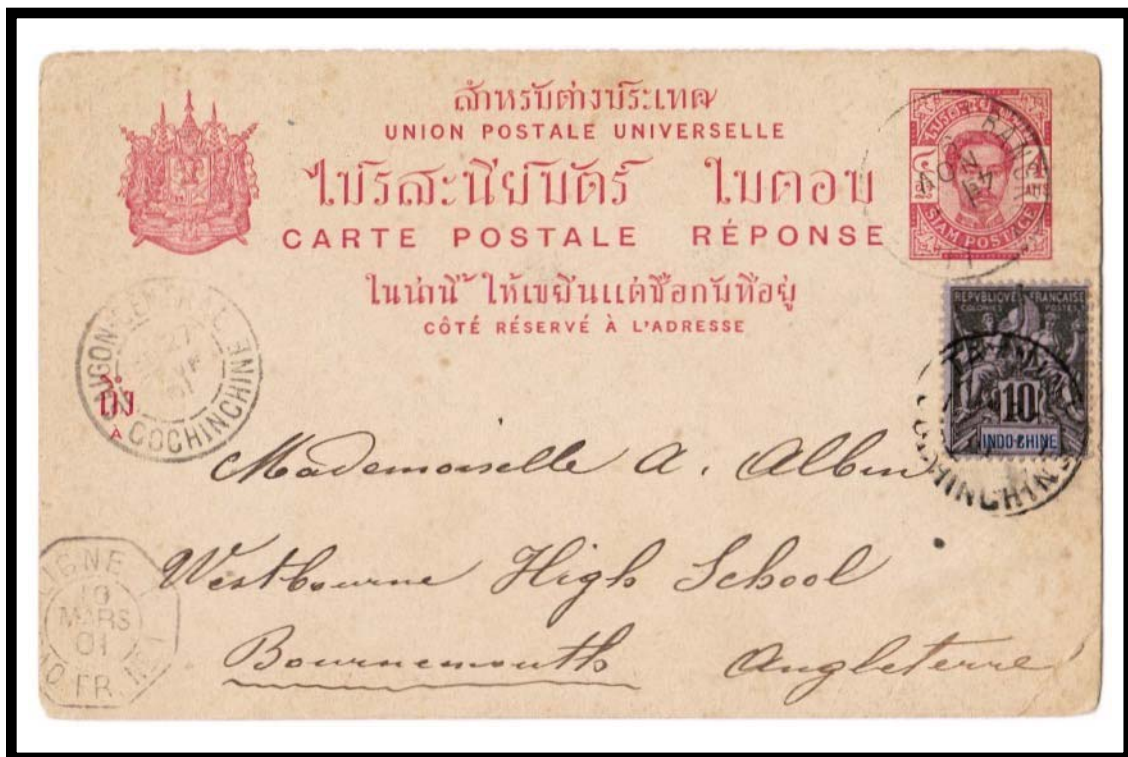 สำหรับต่างประเทศ
UNION POSTALE UNIVERSELLE
ไปรสะนียบัตร์ ใบตอบ
CARTE POSTALE RÉPONSE
ในน่านี้ ให้เขียนแต่ชื่อกับที่อยู่
CÔTÉ RÉSERVÉ À L'ADRESSE
SIAM POSTAGE
REPVBLIQUE FRANÇAISE
10
INDO-CHINE
COCHINCHINE
27
COCHINCHINE
ถึง
A
Mademoiselle A. Albin
Westbourne High School
Bournemouth Angleterre
LIGNE
MARS
01
FR.